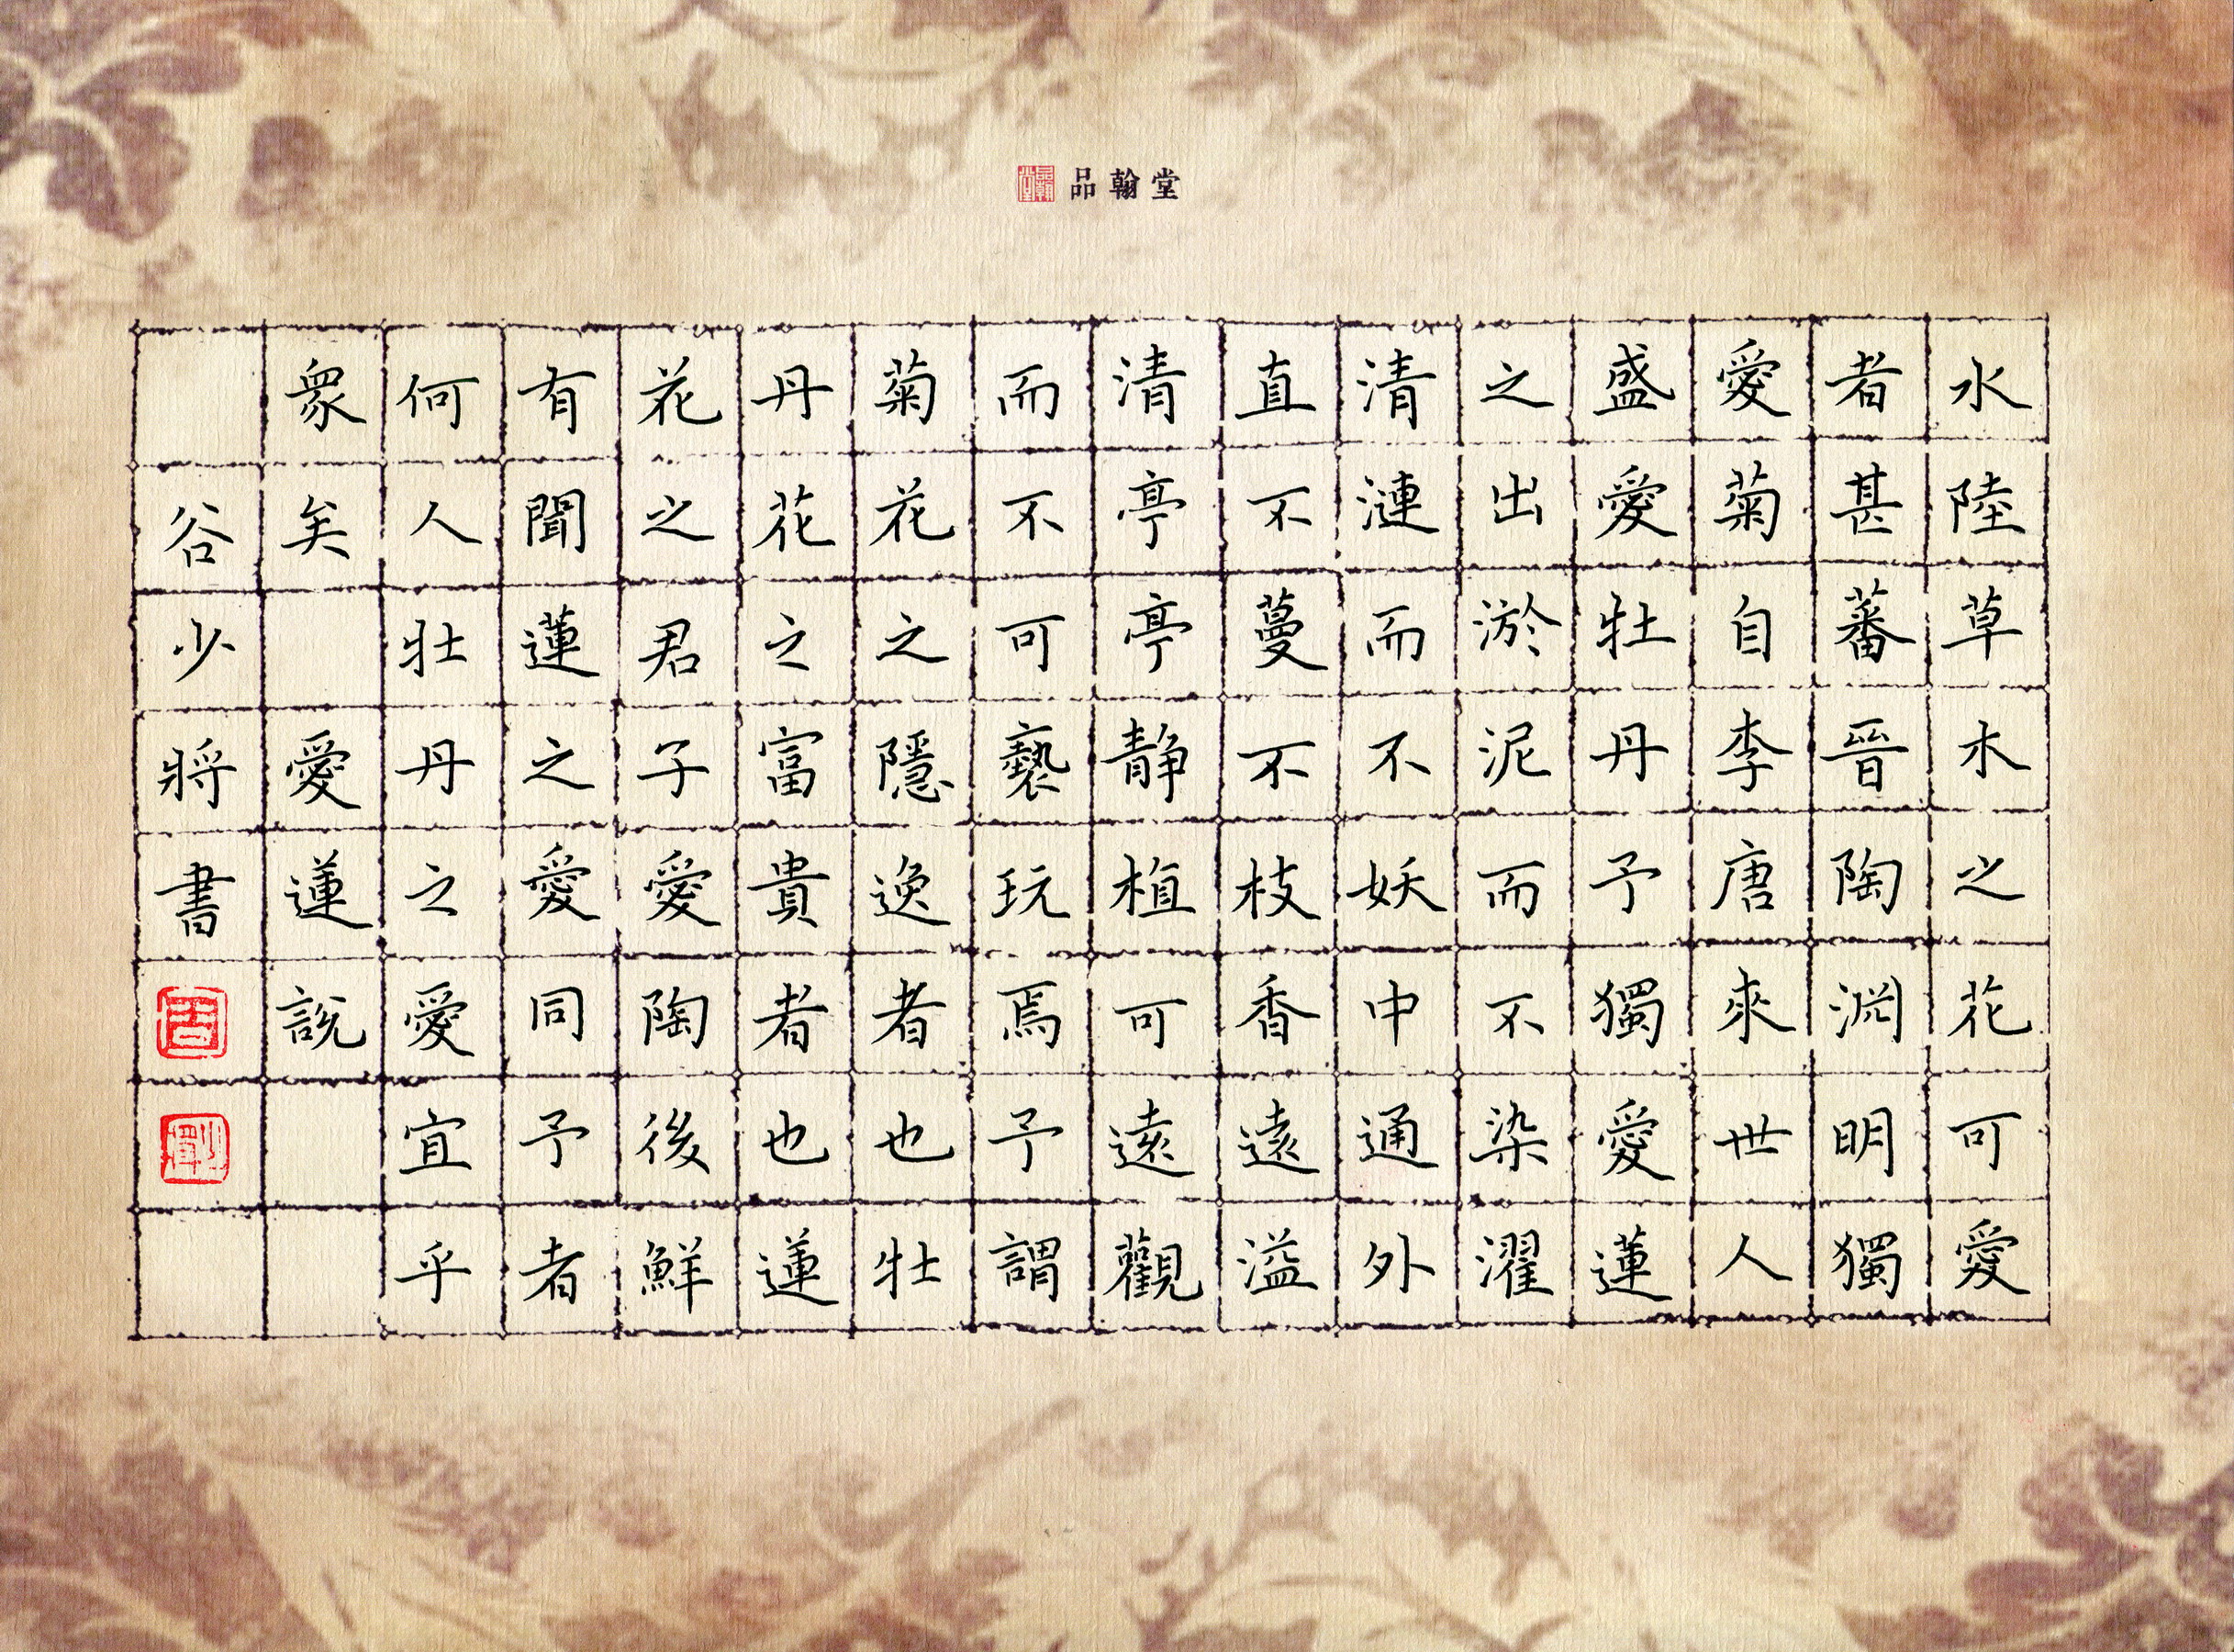 品翰堂
水陸草木之花可愛
者甚蕃晉陶淵明獨
愛菊自李唐來世人
盛愛牡丹予獨愛蓮
之出淤泥而不染濯
清漣而不妖中通外
直不蔓不枝香遠溢
清亭亭静植可遠觀
而不可褻玩焉予謂
菊花之隱逸者也牡
丹花之富貴者也蓮
花之君子愛陶後鮮
有聞蓮之愛同予者
何人牡丹之愛宜乎
衆矣 愛蓮說
谷少將書